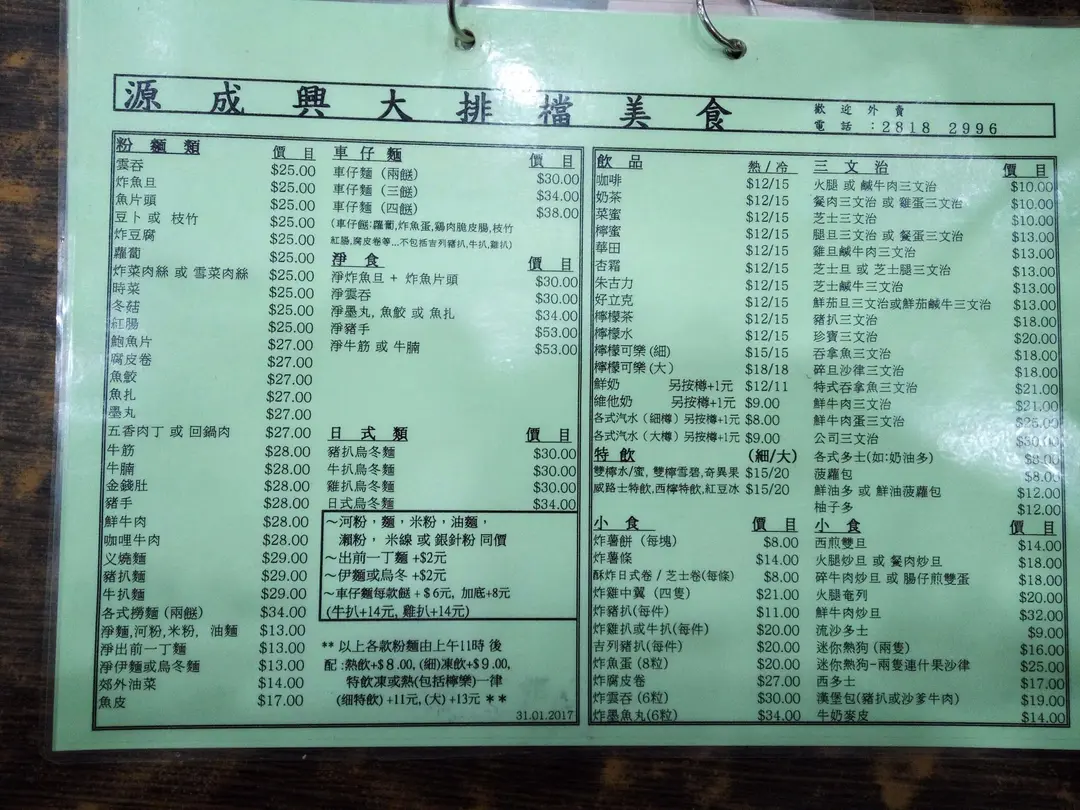 源成興大排檔美食
歡迎外賣
電話:2818 2996
粉麵類 價目
雲吞 $25.00
炸魚旦 $25.00
魚片頭 $25.00
豆卜 或 枝竹 $25.00
炸豆腐 $25.00
蘿蔔 $25.00
炸菜肉絲 或 雪菜肉絲 $25.00
時菜 $25.00
冬菇 $25.00
紅腸 $25.00
鮑魚片 $27.00
腐皮卷 $27.00
魚餃 $27.00
魚扎 $27.00
墨丸 $27.00
五香肉丁 或 回鍋肉 $27.00
牛筋 $28.00
牛腩 $28.00
金錢肚 $28.00
豬手 $28.00
鮮牛肉 $28.00
咖喱牛肉 $28.00
义燒麵 $29.00
豬扒麵 $29.00
牛扒麵 $29.00
各式撈麵 (兩餸) $34.00
淨麵,河粉,米粉, 油麵 $13.00
淨出前一丁麵 $13.00
淨伊麵或烏冬麵 $13.00
郊外油菜 $14.00
魚皮 $17.00
車仔麵 價目
車仔麵 (兩餸) $30.00
車仔麵 (三餸) $34.00
車仔麵 (四餸) $38.00
(車仔餸:蘿蔔,炸魚蛋,雞肉脆皮腸,枝竹
紅腸,腐皮卷等...不包括吉列豬扒,牛扒,雞扒)
淨食 價目
淨炸魚旦 + 炸魚片頭 $30.00
淨雲吞 $30.00
淨墨丸, 魚餃 或 魚扎 $34.00
淨豬手 $53.00
淨牛筋 或 牛腩 $53.00
日式類 價目
豬扒烏冬麵 $30.00
牛扒烏冬麵 $30.00
雞扒烏冬麵 $30.00
日式烏冬麵 $34.00
~河粉,麵,米粉,油麵,
瀨粉, 米線 或 銀針粉 同價
~出前一丁麵 +$2元
~伊麵或烏冬 +$2元
~車仔麵每款餸 +$6元, 加底+8元
(牛扒+14元, 雞扒+14元)
** 以上各款粉麵由上午11時 後
配 :熱飲+$8.00, (細)凍飲+$9.00,
特飲凍或熱(包括檸樂)一律
(細特飲) +11元, (大) +13元 **
31.01.2017
飲品 熱/冷
咖啡 $12/15
奶茶 $12/15
菜蜜 $12/15
檸蜜 $12/15
華田 $12/15
杏霜 $12/15
朱古力 $12/15
好立克 $12/15
檸檬茶 $12/15
檸檬水 $12/15
檸檬可樂 (細) $15/15
檸檬可樂 (大) $18/18
鮮奶 另按樽+1元 $12/11
維他奶 另按樽+1元 $9.00
各式汽水 (細樽) 另按樽+1元 $8.00
各式汽水 (大樽) 另按樽+1元 $9.00
特飲 (細/大)
雙檸水/蜜, 雙檸雪碧, 奇異果 $15/20
威路士特飲, 西檸特飲, 紅豆冰 $15/20
小食 價目
炸薯餅 (每塊) $8.00
炸薯條 $14.00
酥炸日式卷 / 芝士卷(每條) $8.00
炸雞中翼 (四隻) $21.00
炸豬扒(每件) $11.00
炸雞扒或牛扒(每件) $20.00
吉列豬扒(每件) $20.00
炸魚蛋 (8粒) $20.00
炸腐皮卷 $27.00
炸雲吞 (6粒) $30.00
炸墨魚丸(6粒) $34.00
三文治 價目
火腿 或 鹹牛肉三文治 $10.00
餐肉三文治 或 雞蛋三文治 $10.00
芝士三文治 $10.00
腿旦三文治 或 餐蛋三文治 $13.00
雞旦鹹牛肉三文治 $13.00
芝士旦 或 芝士腿三文治 $13.00
芝士鹹牛三文治 $13.00
鮮茄旦三文治或鮮茄鹹牛三文治 $13.00
豬扒三文治 $18.00
珍寶三文治 $20.00
吞拿魚三文治 $18.00
碎旦沙律三文治 $18.00
特式吞拿魚三文治 $21.00
鮮牛肉三文治 $21.00
鮮牛肉蛋三文治
公司三文治 $30.00
各式多士(如:奶油多) $8.00
菠蘿包 $8.00
鮮油多 或 鮮油菠蘿包 $12.00
柚子多 $12.00
小食 價目
西煎雙旦 $14.00
火腿炒旦 或 餐肉炒旦 $18.00
碎牛肉炒旦 或 腸仔煎雙蛋 $18.00
火腿奄列 $20.00
鮮牛肉炒旦 $32.00
流沙多士 $9.00
迷你熱狗 (兩隻) $16.00
迷你熱狗-兩隻連什果沙律 $25.00
西多士 $17.00
漢堡包(豬扒或沙爹牛肉) $19.00
牛奶麥皮 $14.00